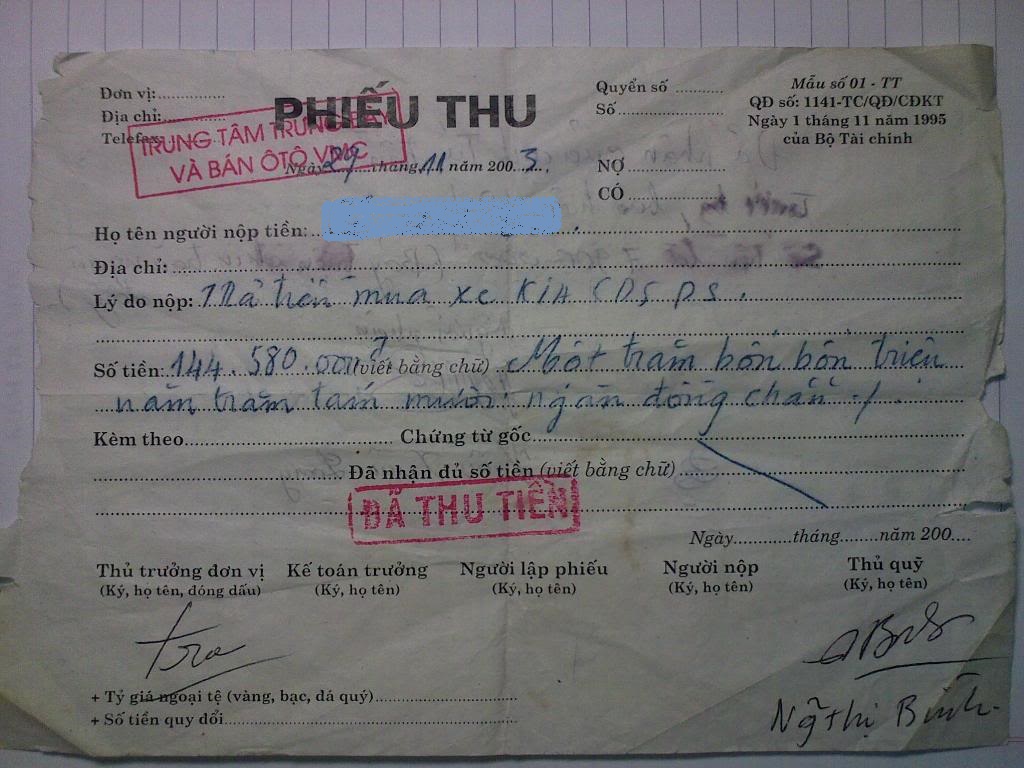 Đơn vị:
PHIẾU THU
Quyển số
Mẫu số 01 - TT
Địa chỉ:
Số
QĐ số: 1141-TC/QĐ/CĐKT
Telefax:
Ngày 1 tháng 11 năm 1995
của Bộ Tài chính
TRUNG TÂM TRƯNG BÀY
VÀ BÁN ÔTÔ VMC
Ngày 29 tháng 11 năm 2003
NỢ
CÓ
Họ tên người nộp tiền:
Địa chỉ:
Lý do nộp: Trả tiền mua xe KIA CD5 PS.
Số tiền: 144.580.000đ (viết bằng chữ) Một trăm bốn bốn triệu
năm trăm tám mươi ngàn đồng chẵn ./.
Kèm theo Chứng từ gốc
Đã nhận đủ số tiền (viết bằng chữ)
ĐÃ THU TIỀN
Ngày tháng năm 200
Thủ trưởng đơn vị Kế toán trưởng Người lập phiếu Người nộp Thủ quỹ
(Ký, họ tên, đóng dấu) (Ký, họ tên) (Ký, họ tên) (Ký, họ tên) (Ký, họ tên)
+ Tỷ giá ngoại tệ (vàng, bạc, đá quý)
+ Số tiền quy đổi
Ng Thị Bình